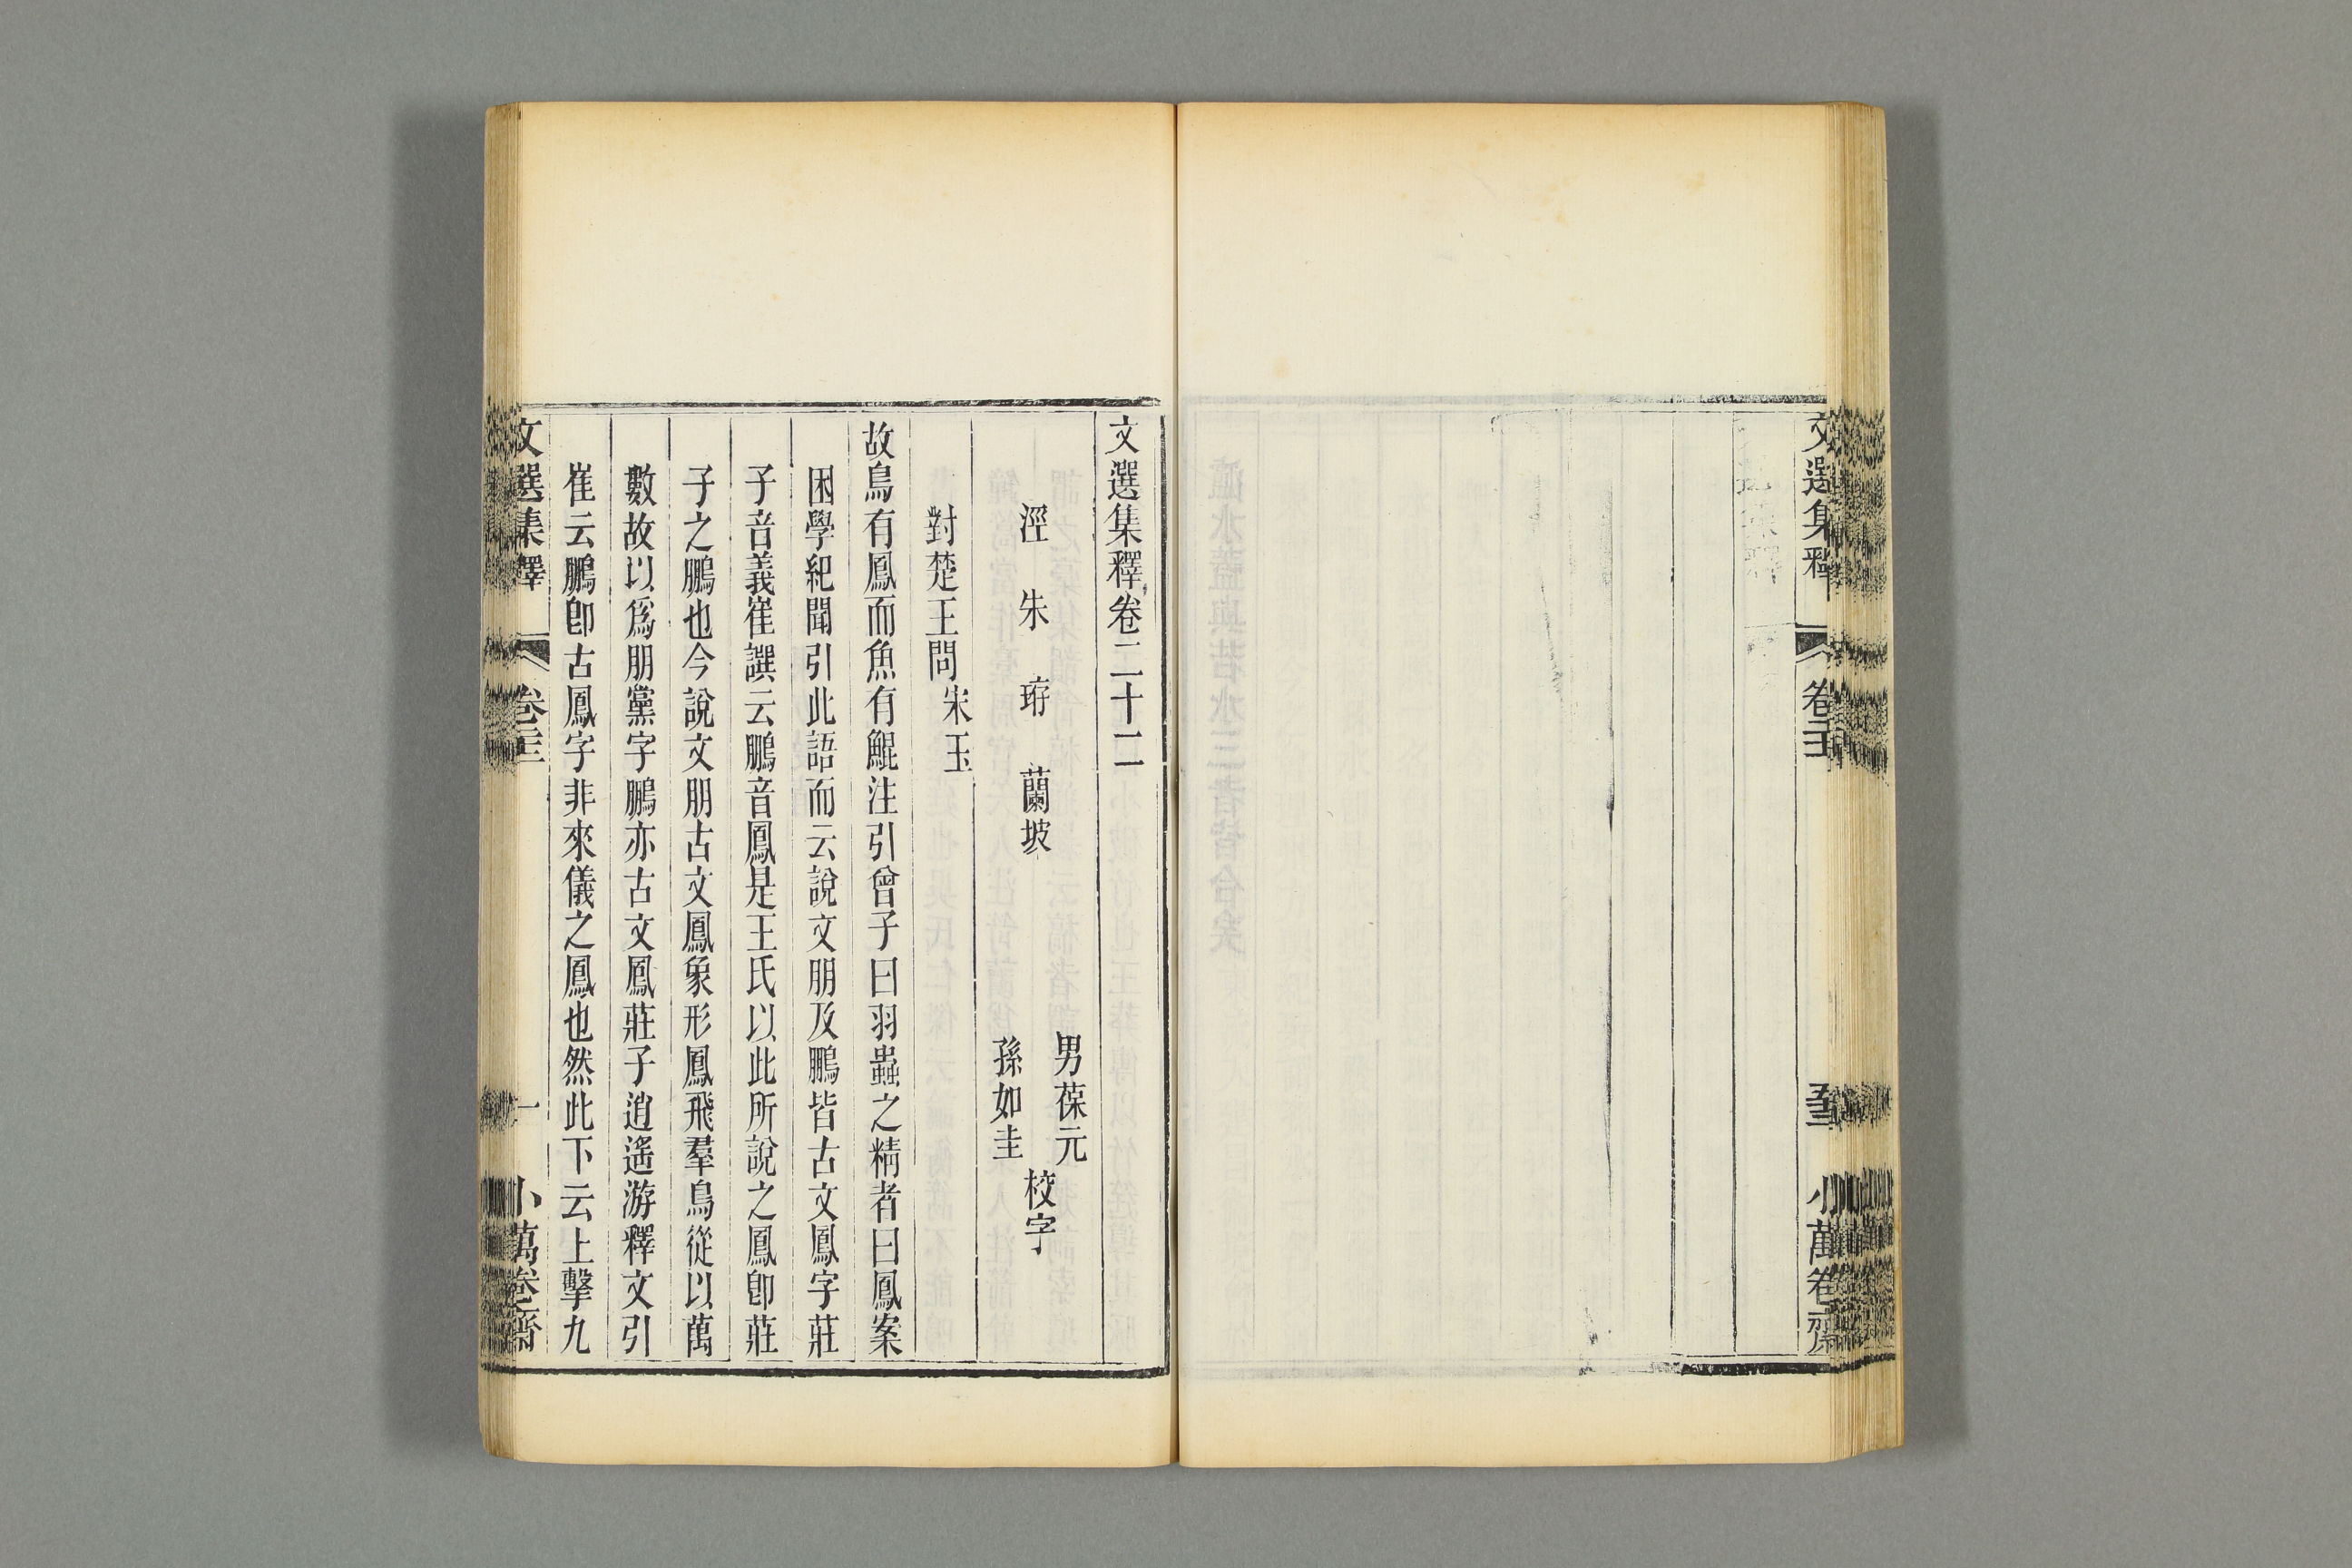 文選集釋
卷
小萬卷齋
文選集釋卷二十二
涇 朱 珔 蘭坡
男葆元
孫如圭
校字
對楚王問 宋玉
故鳥有鳳而魚有鯤注引曾子曰羽蟲之精者曰鳳案
困學紀聞引此語而云說文朋及鵬皆古文鳳字莊
子音義崔譔云鵬音鳳是王氏以此所說之鳳卽莊
子之鵬也今說文朋古文鳳象形鳳飛羣鳥從以萬
數故以爲朋黨字鵬亦古文鳳莊子逍遙游釋文引
崔云鵬卽古鳳字非來儀之鳳也然此下云上擊九
文選集釋
卷
一
小萬卷齋